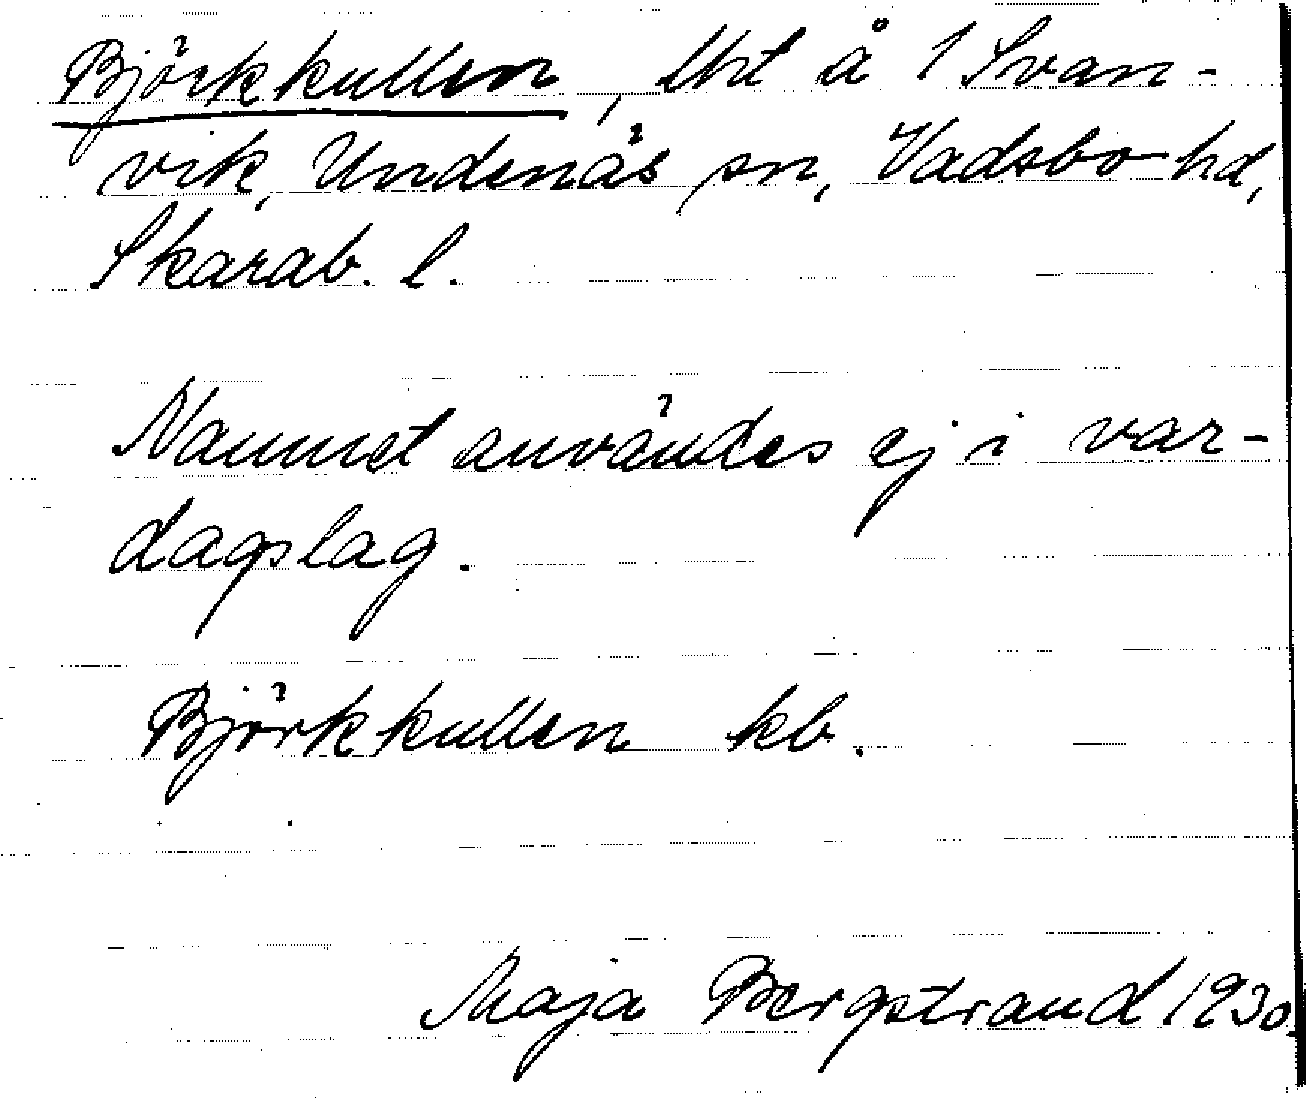 Björkkullen, lht å 1 Svan-
vik, Undenäs sn, Vadsbo hd,
Skarab. l.
Namnet användes ej i var-
dagslag.
Björkkullen kb.
Maja Bergstrand 1930.